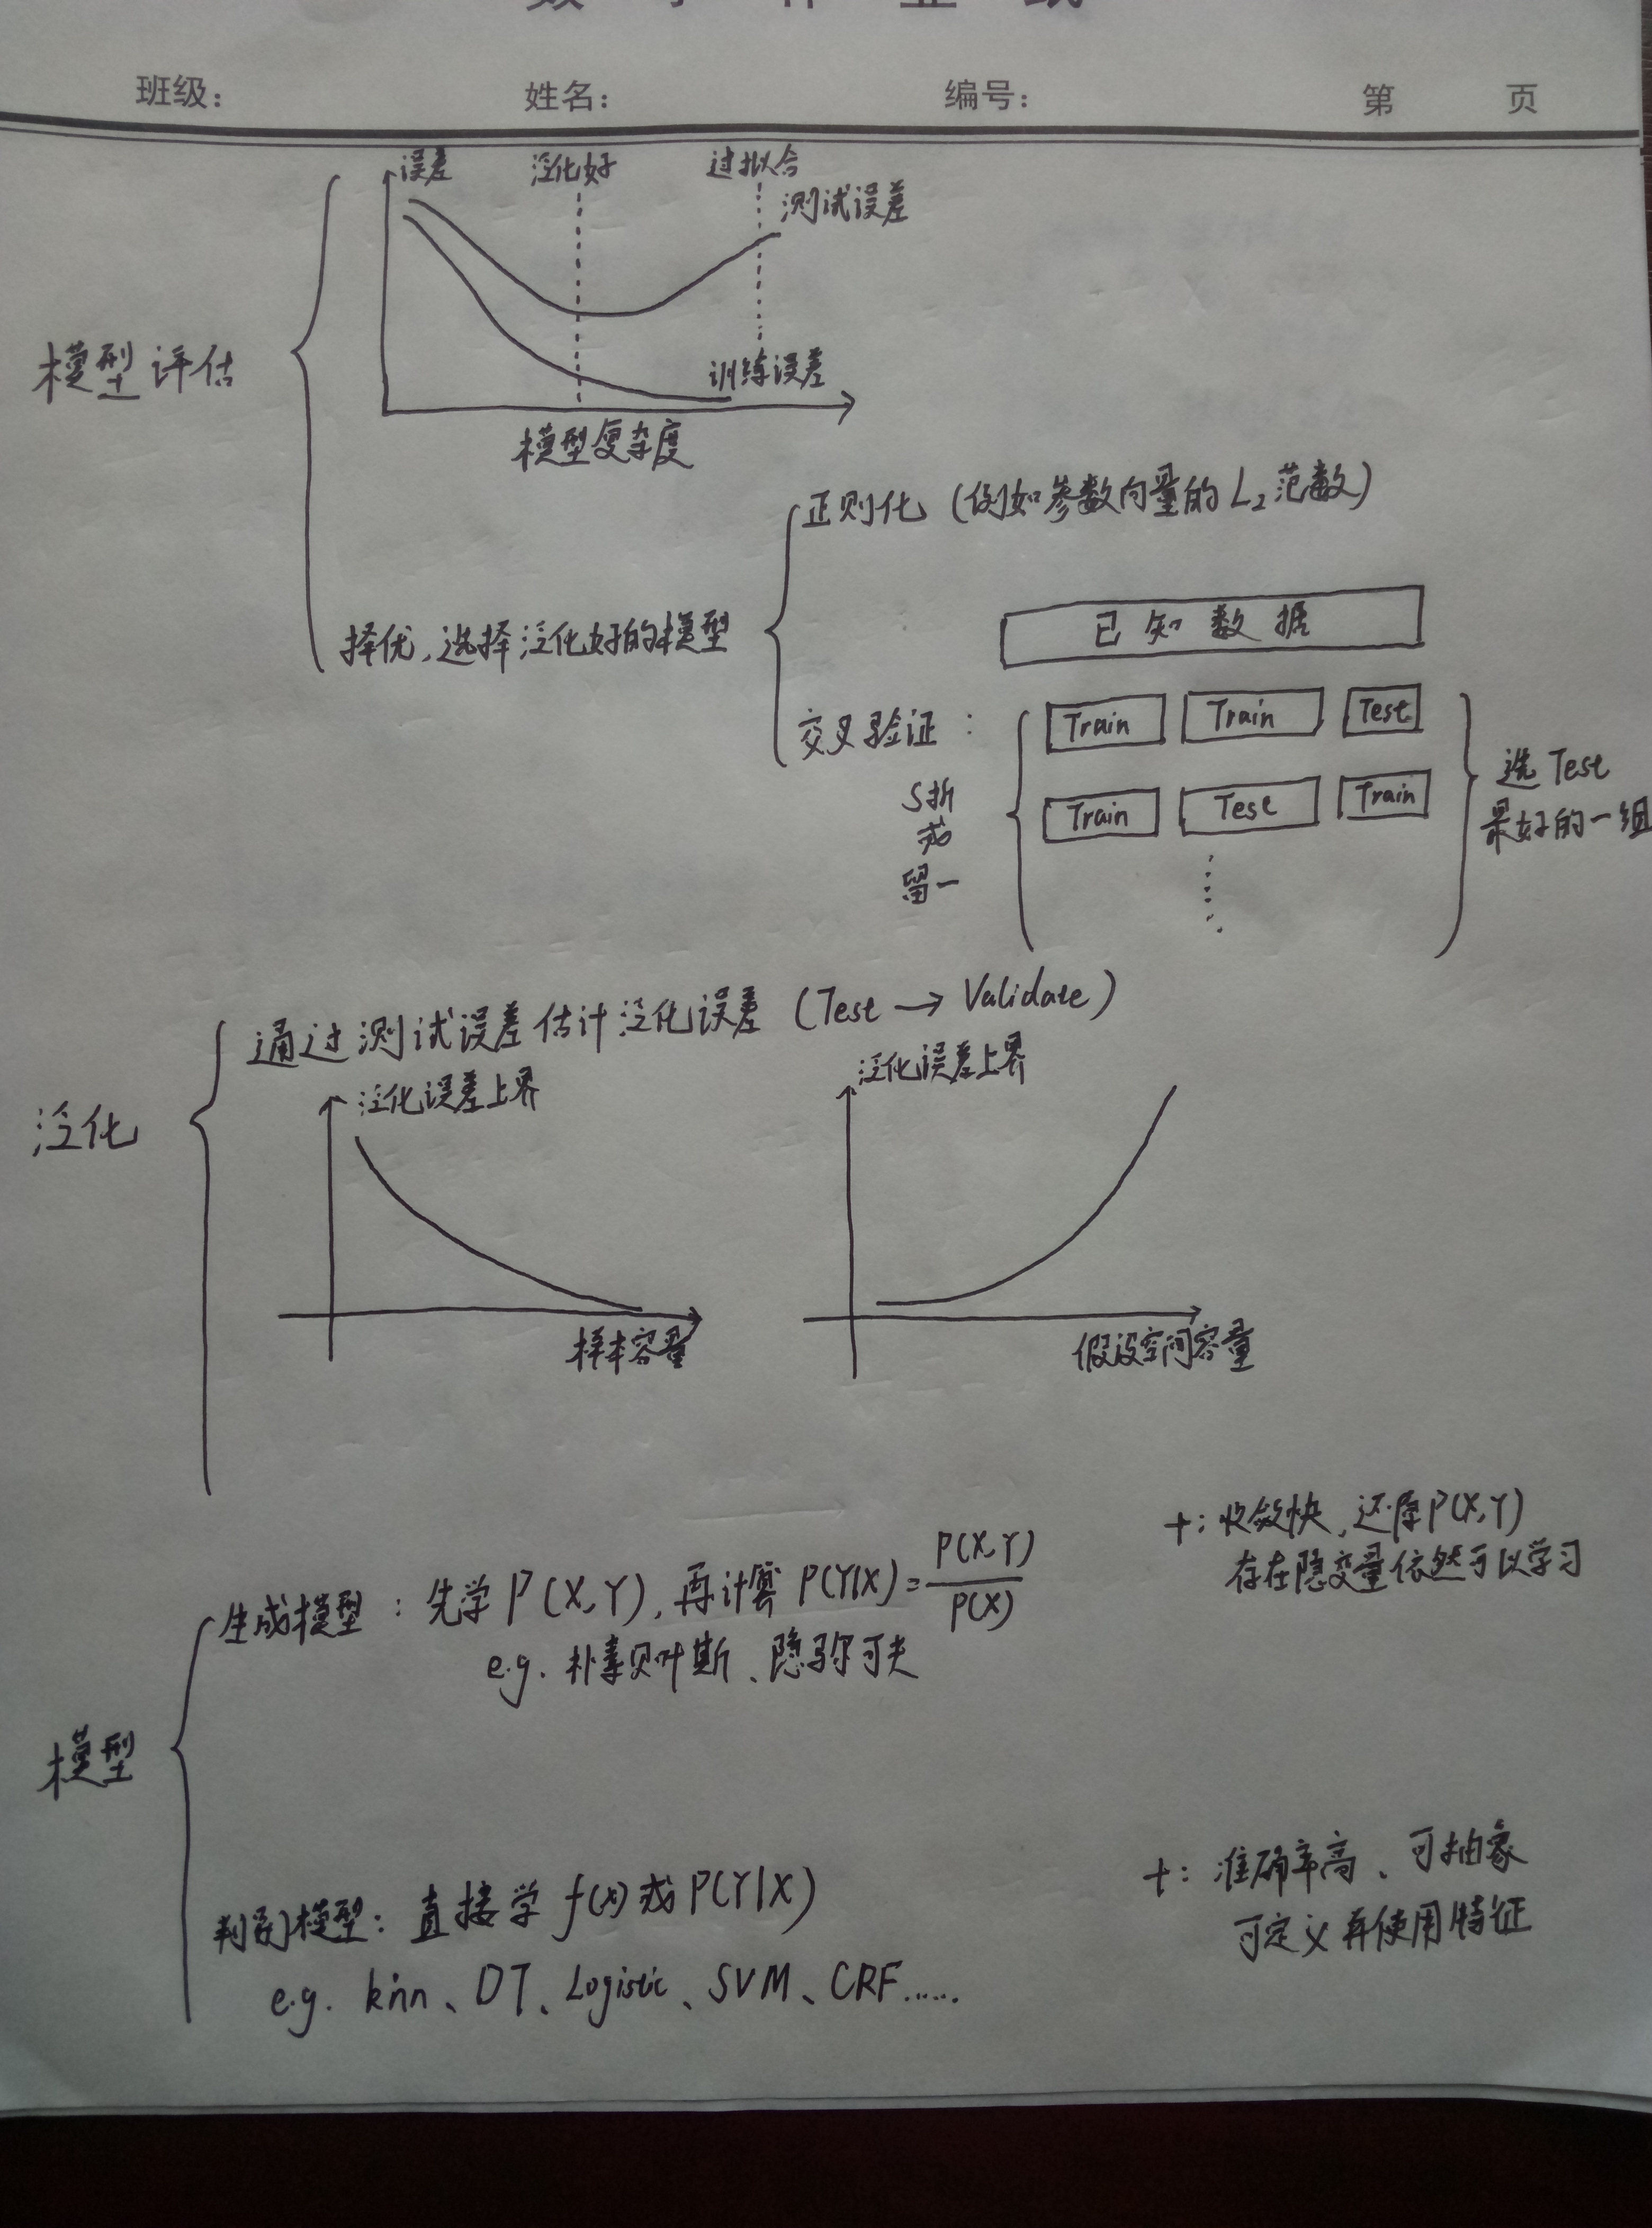 班级： 姓名： 编号： 第 页
误差 泛化好 过拟合
测试误差
训练误差
模型复杂度
模型评估
正则化（例如参数向量的L2范数）
择优，选择泛化好的模型
已知数据
交叉验证：
S折
或
留一
Train Train Test
Train Test Train
......
选Test
最好的一组
泛化
通过测试误差估计泛化误差（Test → Validate）
泛化误差上界
样本容量
泛化误差上界
假设空间容量
模型
生成模型：先学P(X,Y)，再计算P(Y|X)=P(X,Y)/P(X)
e.g. 朴素贝叶斯、隐马尔可夫
+：收敛快，还原P(X,Y)
存在隐变量依然可以学习
判别模型：直接学f(x)或P(Y|X)
e.g. knn、DT、Logistic、SVM、CRF......
+：准确率高、可抽象
可定义并使用特征